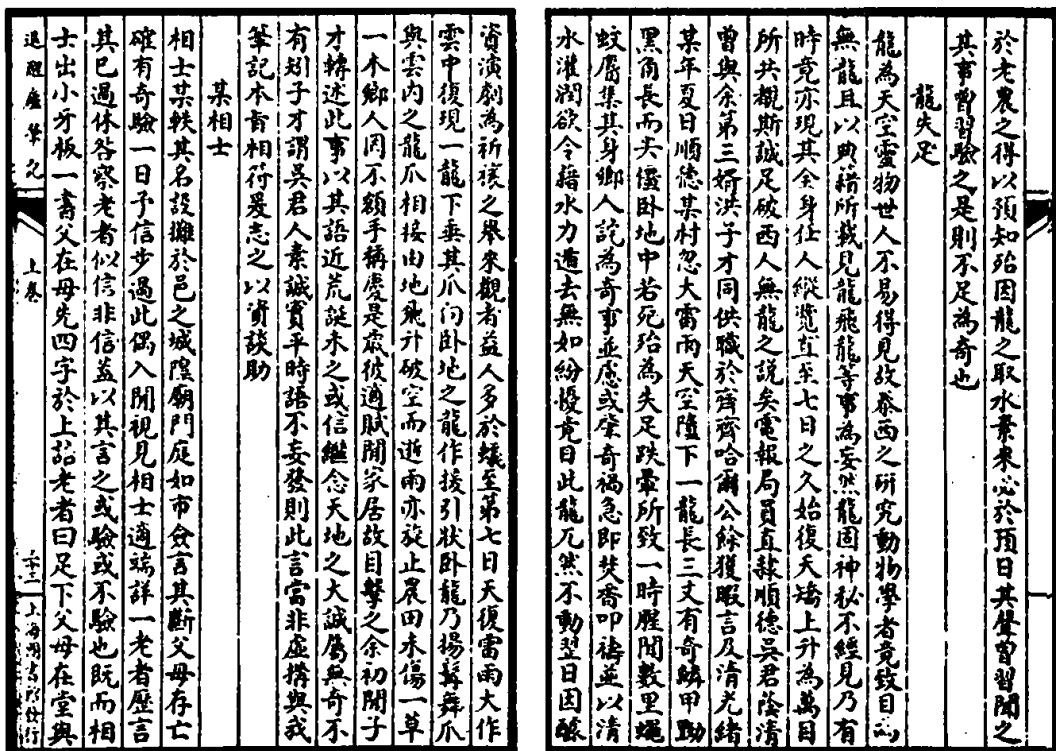 於老農之得以預知殆因龍之取水業來必於預日其聲曾習聞之
其事曾習驗之是則不足為奇也
龍失足
龍為天空靈物世人不易得見故泰西之研究動物學者竟致目為
無龍且以典籍所載見龍飛龍等事為妄然龍固神秘不經見乃有
時竟亦現其全身任人縱覽直至七日之久始復夭矯上升為萬目
所共觀斯誠足破西人無龍之說矣電報局員直隸順德吳君蔭清
曾與余第三婿洪子才同供職於齊齊哈爾公餘獲暇言及清光緒
某年夏日順德某村忽大雷雨天空墮下一龍長三丈有奇鱗甲黝
黑角長而尖僵臥地中若死殆為失足跌暈所致一時腥聞數里蠅
蚊麕集其身鄉人詫為奇事並慮或肇奇禍急即焚香叩禱並以清
水灌潤欲令藉水力遁去無如紛擾竟日此龍兀然不動翌日因醵
資演劇為祈禳之舉來觀者益人多於蟻至第七日天復雷雨大作
雲中復現一龍下垂其爪向臥地之龍作援引狀臥龍乃揚髯舞爪
與雲內之龍爪相接由地飛升破空而逝雨亦旋止農田未傷一草
一木鄉人罔不額手稱慶是歲彼適賦閒家居故目擊之余初聞子
才轉述此事以其語近荒誕未之或信繼念天地之大誠屬無奇不
有矧子才謂吳君人素誠實平時語不妄發則此言當非虛搆與我
筆記本旨相符爰志之以資談助
某相士
相士某軼其名設攤於邑之城隍廟門庭如市僉言其斷父母存亡
確有奇驗一日予信步過此偶入閒視見相士適端詳一老者歷言
其已過休咎察老者似信非信蓋以其言之或驗或不驗也既而相
士出小牙板一書父在母先四字於上詔老者曰足下父母在堂與
退醒廬筆記
上卷
三十三
上海圖書館發行